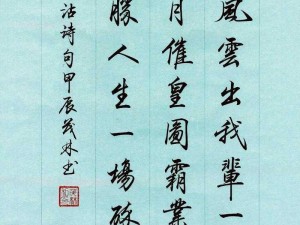 風雲出我輩一
月催皇圖霸業
勝人生一場酔
沽诗句甲辰茂林书